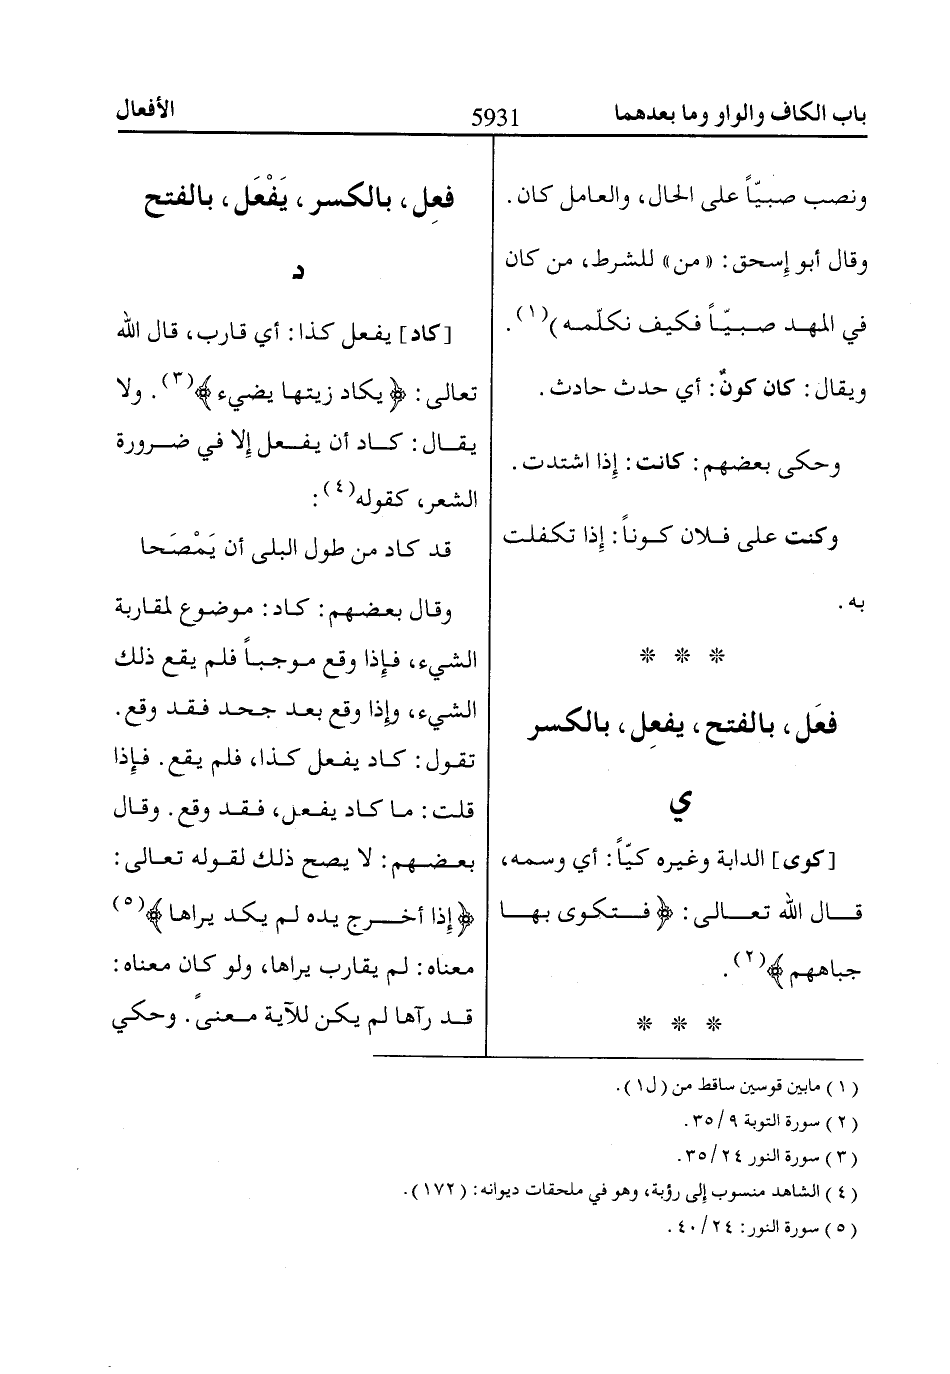 باب الكاف والواو وما بعدهما 5931 الأفعال
ونصب صبيّاً على الحال، والعامل كان.
وقال أبو إسحق: «من» للشرط، من كان
في المهد صبيّاً فكيف نكلّمه)(١).
ويقال: كان كونٌ: أي حدث حادث.
وحكى بعضهم: كانت: إذا اشتدت.
وكنت على فلان كوناً: إذا تكفلت
به.
* * *
فعَل، بالفتح، يفعِل، بالكسر
ي
[كوى] الدابة وغيره كيّاً: أي وسمه،
قال الله تعالى: ﴿فتكوى بها
جباههم﴾(٢).
* * *
فعِل، بالكسر، يَفْعَل، بالفتح
د
[كاد] يفعل كذا: أي قارب، قال الله
تعالى: ﴿يكاد زيتها يضيء﴾(٣). ولا
يقال: كاد أن يفعل إلا في ضرورة
الشعر، كقوله(٤):
قد كاد من طول البلى أن يَمْصَحا
وقال بعضهم: كاد: موضوع لمقاربة
الشيء، فإذا وقع موجباً فلم يقع ذلك
الشيء، وإذا وقع بعد جحد فقد وقع.
تقول: كاد يفعل كذا، فلم يقع. فإذا
قلت: ما كاد يفعل، فقد وقع. وقال
بعضهم: لا يصح ذلك لقوله تعالى:
﴿إذا أخرج يده لم يكد يراها﴾(٥)
معناه: لم يقارب يراها، ولو كان معناه:
قد رآها لم يكن للآية معنىً. وحكي
(١) مابين قوسين ساقط من (ل١).
(٢) سورة التوبة ٩/ ٣٥.
(٣) سورة النور ٢٤/ ٣٥.
(٤) الشاهد منسوب إلى رؤبة، وهو في ملحقات ديوانه: (١٧٢).
(٥) سورة النور: ٢٤/ ٤٠.